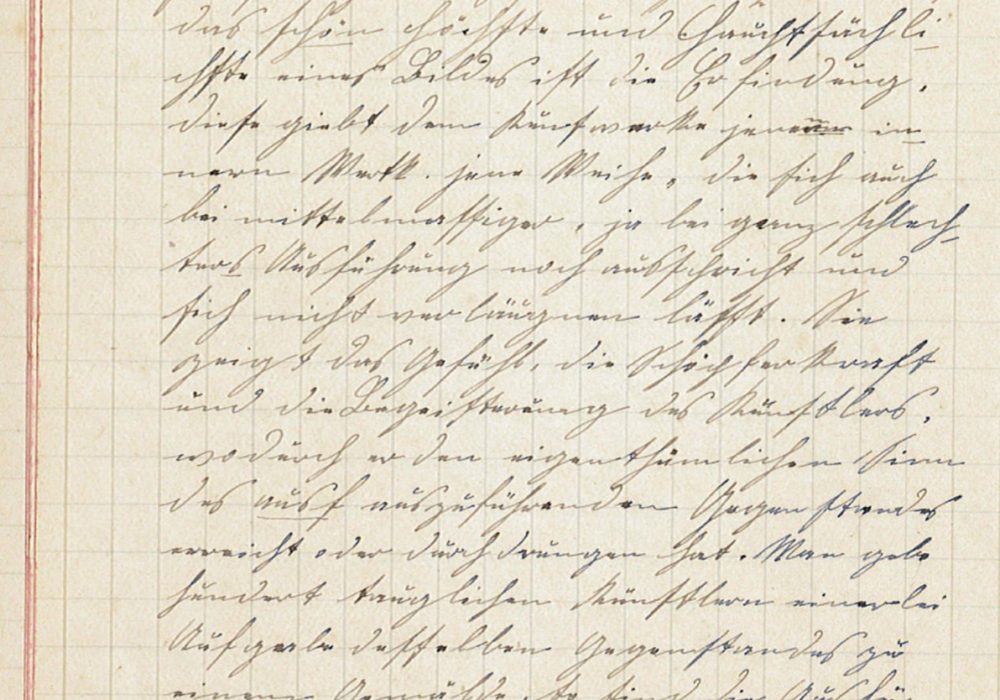 das schön höchste und Hauptsächli-
chste eines Bildes ist die Erfindung,
diese giebt dem Kunstwerke jenen in-
nern Werth. jene Weihe, die sich auch
bei mittelmässiger, ja bei ganz schlech-
ters Ausführung noch ausspricht und
sich nicht verläugnen lässt. Sie
zeigt das Gefühl, die Schöpferkraft
und die Begeisterung des Künstlers,
wodurch er den eigenthümlichen Sinn
des ausf auszuführenden Gegenstandes
erreicht oder durchdrungen hat. Man gebe
hundert tauglichen Künstlern einerlei
Aufgabe desselben Gegenstandes zu
einem Gemälde, so sind die